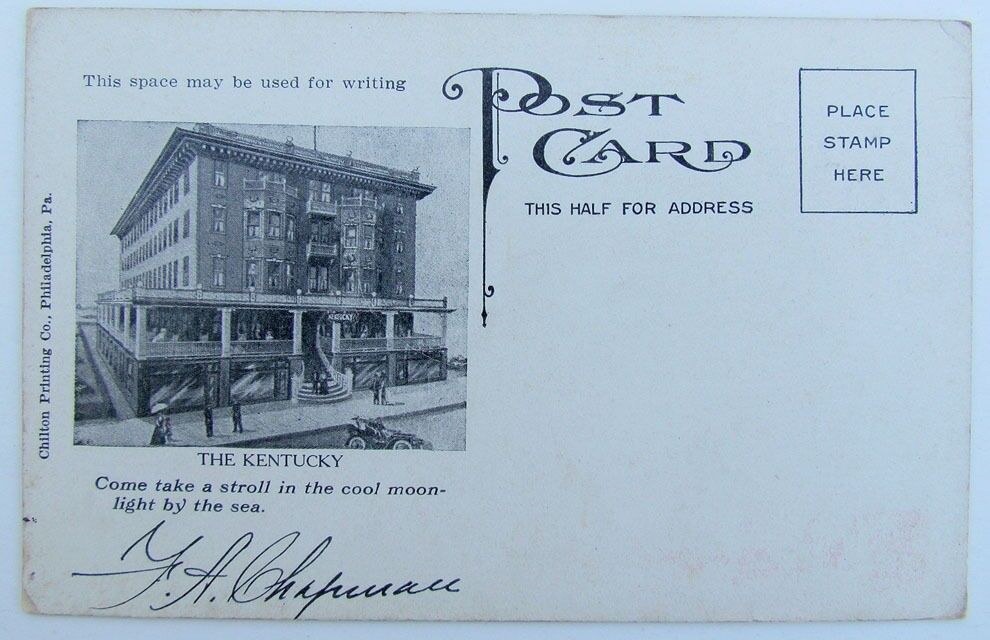 This space may be used for writing
POST
CARD
THIS HALF FOR ADDRESS
PLACE
STAMP
HERE
Chilton Printing Co., Philadelphia, Pa.
KENTUCKY
THE KENTUCKY
Come take a stroll in the cool moon-
light by the sea.
F. A. Chapman